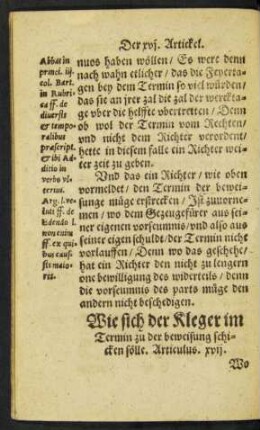 Der xvj. Artickel.
Abbat in
princi. iij.
col. Bart.
in Rubri
ca ff. de
diuersis
et tempo
ralibus
præscript.
et ibi Ad
ditio in
verbo vl-
terius.
Arg. l. so
luti ff. de
Edendo l.
non enim
ff. ex qui
bus caus.
ff. maio-
res.
nuos haben wöllen / Es were denn
nach wahn etlicher / das die Feyerta-
gen bey dem Termin so viel würden /
das sie an jrer zal die zal der werckta-
ge vber die helffte vbertretten / Denn
ob wol der Termin vom Rechten /
vnd nicht dem Richter verordent /
hette in diesem falle ein Richter wei-
ter zeit zu geben.
Vnd das ein Richter / wie oben
vormeldet / den Termin der bewei-
sunge müge erstrecken / Ist zuuorne-
men / wo dem Gezeugefürer aus sei-
ner eigenen vorseumnis / vnd also aus
seiner eigen schuldt / der Termin nicht
vorlauffen / Denn wo das geschehe /
hat ein Richter den nicht zu lengern
one bewilligung des widerteils / denn
die vorseumnis des parts müge den
andern nicht beschedigen.
Wie sich der Kleger im
Termin zu der beweisung schi-
cken sölle. Articulus. xvij.
Wo